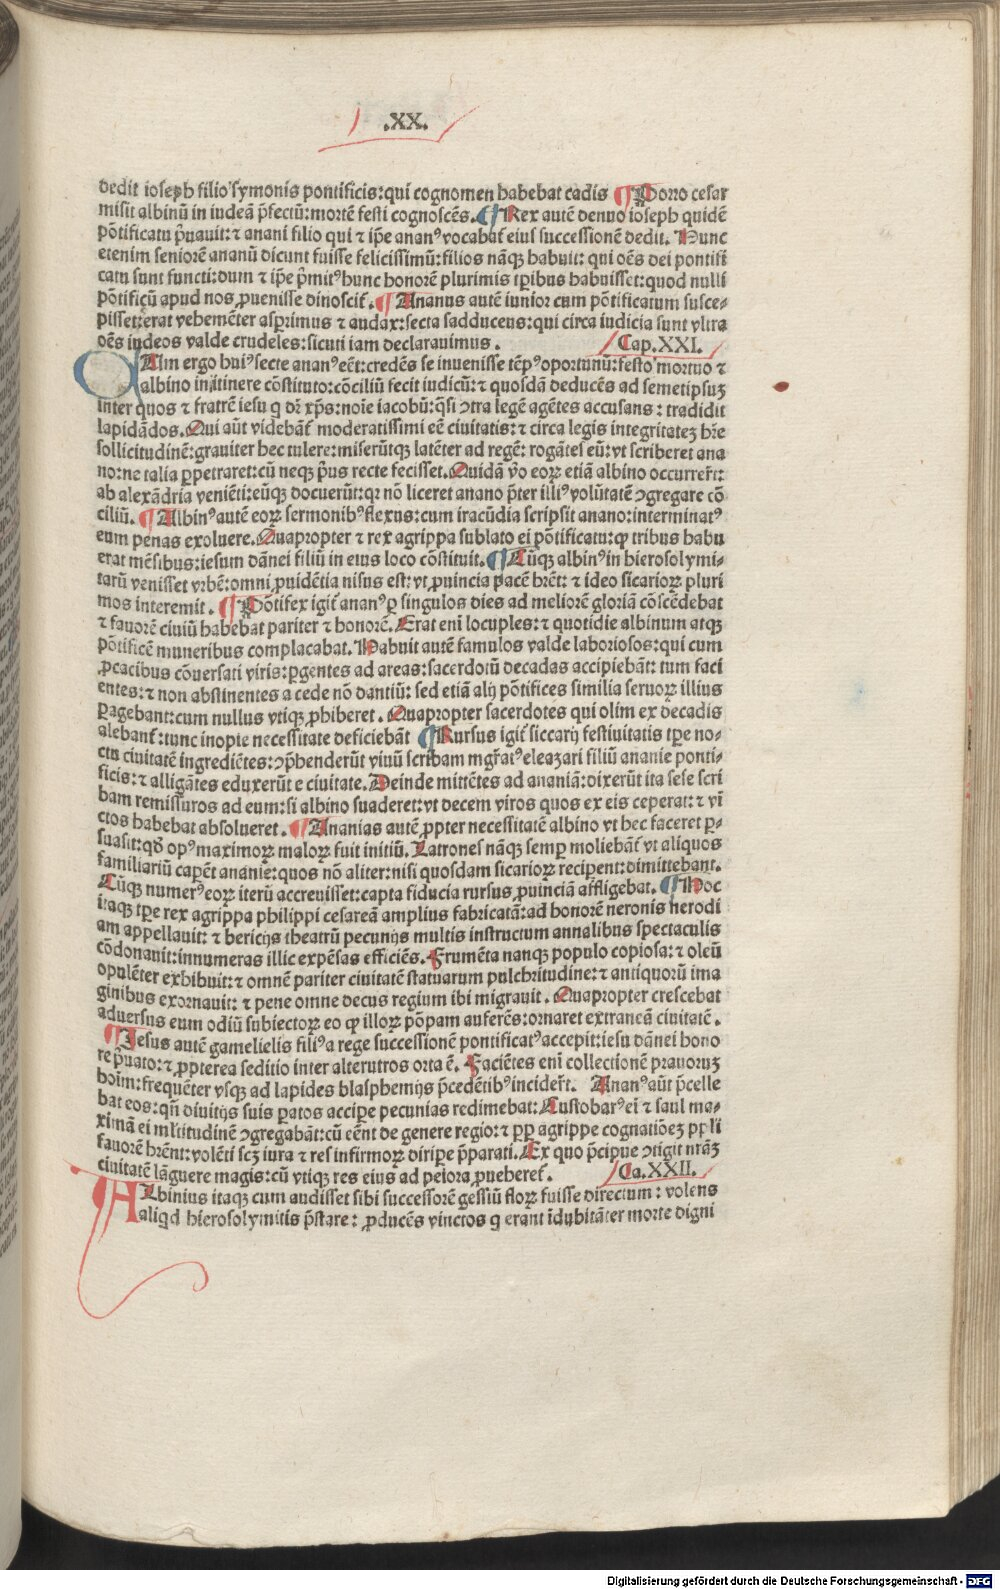 .XX.
dedit ioseph filio symonis pontificis: qui cognomen habebat cadis ¶ Porro cesar
misit albinū in iudeā p̄fectū: mortē festi cognoscēs. ¶ Rex autē denuo ioseph quidē
pōtificatu p̄uauit: ⁊ anani filio qui ⁊ ip̄e ananꝰ vocabat᷑ eius successionē dedit. Hunc
etenim seniorē ananū dicunt fuisse felicissimū: filios nāqꝫ habuit: qui oēs dei pontifi
catu sunt functi: dum ⁊ ip̄e p̄mitꝰ hunc honorē plurimis tp̄ibus habuisset: quod nulli
pōtificū apud nos ꝓuenisse dinoscit᷑. ¶ Ananus autē iunior cum pōtificatum susce⸗
pisset: erat vehemēter asp̄rimus ⁊ audax: secta sadduceus: qui circa iudicia sunt vltra
oēs iudeos valde crudeles: sicuti iam declarauimus.
Cap. XXI.
CUm ergo huiꝰ secte ananꝰ eēt: credēs se inuenisse tēpꝰ oportunū: festo mortuo ⁊
albino in itinere cōstituto: cōciliū fecit iudicū: ⁊ quosdā deducēs ad semetipsuꝫ
inter quos ⁊ fratrē iesu q̄ dr̄ xp̄s: noīe iacobū: q̄si ꝯtra legē agētes accusans: tradidit
lapidādos. Qui aūt videbāt᷑ moderatissimi eē ciuitatis: ⁊ circa legis integritateꝫ hr̄e
sollicitudinē: grauiter hec tulere: miserūtqꝫ latēter ad regē: rogātes eū: vt scriberet ana
no: ne talia ꝑpetraret: cū neqꝫ p̄us recte fecisset. Quidā v̄o eoꝝ etiā albino occurrer̄t:
ab alexādria veniēti: eūqꝫ docuerūt: qꝛ nō liceret anano p̄ter illiꝰ volūtatē ꝯgregare cō
ciliū. ¶ Albinꝰ autē eoꝝ sermonibꝰ flexus: cum iracūdia scripsit anano: interminatꝰ
eum penas exoluere. Quapropter ⁊ rex agrippa sublato ei pōtificatu: qꝫ tribus habu
erat mēsibus: iesum dānei filiū in eius loco cōstituit. ¶ Cūqꝫ albinꝰ in hierosolymi⸗
tarū venisset vrbē: omni ꝓuidētia nisus est: vt ꝓuincia pacē hr̄et: ⁊ ideo sicarioꝝ pluri
mos interemit. ¶ Pōtifex igit᷑ ananꝰ ꝑ singulos dies ad meliorē gloriā cōscēdebat
⁊ fauorē ciuiū habebat pariter ⁊ honorē. Erat enī locuples: ⁊ quotidie albinum atqꝫ
pōtificē muneribus complacabat. Habuit autē famulos valde laboriosos: qui cum
ꝓcacibus cōuersati viris: ꝑgentes ad areas: sacerdotū decadas accipiebāt: tum faci
entes: ⁊ non abstinentes a cede nō dantiū: sed etiā alij pōtifices similia seruoꝝ illius
ꝑagebant: cum nullus vtiqꝫ ꝓhiberet. Quapropter sacerdotes qui olim ex decadis
alebant᷑: tunc inopie necessitate deficiebāt ¶ Rursus igit᷑ siccarij festiuitatis tp̄e no⸗
ctu ciuitatē ingrediētes: ꝯp̄henderūt viuū scribam mgr̄atꝰ eleazari filiū ananie ponti⸗
ficis: ⁊ alligātes eduxerūt e ciuitate. Deinde mittētes ad ananiā: dixerūt ita sese scri
bam remissuros ad eum: si albino suaderet: vt decem viros quos ex eis ceperat: ⁊ vī
ctos habebat absolueret. ¶ Ananias autē ꝓpter necessitatē albino vt hec faceret ꝑ⸗
suasit: qd̄ opꝰ maximoꝝ maloꝝ fuit initiū. Latrones nāqꝫ semꝑ moliebāt᷑ vt aliquos
familiariū caperēt ananie: quos nō aliter: nisi quosdam sicarioꝝ reciperent: dimittebant.
Cūqꝫ numerꝰ eoꝝ iterū accreuisset: capta fiducia rursus ꝓuinciā affligebat. ¶ Hoc
itaqꝫ tp̄e rex agrippa philippi cesareā amplius fabricatā: ad honorē neronis nerodi
am appellauit: ⁊ berictijs theatrū pecunijs multis instructum annalibus spectaculis
cōdonauit: innumeras illic expēsas efficiēs. Frumēta nanqꝫ populo copiosa: ⁊ oleū
opulēter exhibuit: ⁊ omnē pariter ciuitatē statuarum pulchritudine: ⁊ antiquorū ima
ginibus exornauit: ⁊ pene omne decus regium ibi migrauit. Quapropter crescebat
aduersus eum odiū subiectoꝝ eo qꝫ illoꝝ pōpam auferēs: ornaret extraneā ciuitatē.
¶ Iesus autē gamelielis filiꝰ a rege successionē pontificatꝰ accepit: iesu dānei hono
re p̄uato: ⁊ ꝓpterea seditio inter alterutros orta ē. Faciētes enī collectionē prauoruꝫ
hoīm: frequēter vsqꝫ ad lapides blasphemijs p̄cedētibꝰ incider̄t. Ananꝰ aūt p̄celle
bat eos: qn̄ diuitijs suis ꝑatos accipe pecunias redimebat: Custobarꝰ eī ⁊ saul ma⸗
ximā ei ml̄titudinē ꝯgregabāt: cū eēnt de genere regio: ⁊ ꝓp̄ agrippe cognatiōeꝫ pp̄li
fauorē hr̄ent: volēti scꝫ iura ⁊ res infirmoꝝ diripe p̄parati. Ex quo p̄cipue ꝯtigit nr̄aꝫ
ciuitatē lāguere magis: cū vtiqꝫ res eius ad peiora ꝓueheret᷑.
Ca. XXII.
ALbinius itaqꝫ cum audisset sibi successorē gessiū floꝝ fuisse directum: volens
aliqd hierosolymitis p̄stare: ꝓducēs vinctos q̄ erant īdubitāter morte digni
Digitalisierung gefördert durch die Deutsche Forschungsgemeinschaft - DFG